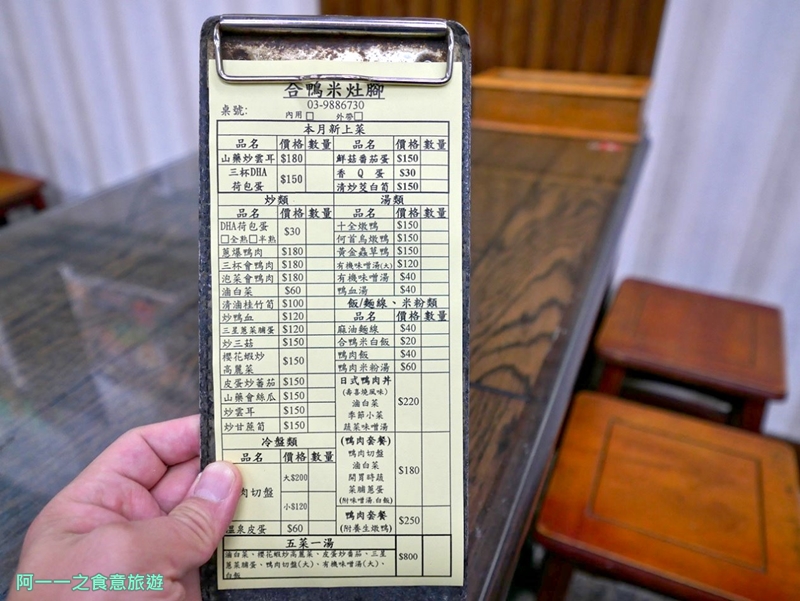 合鴨米灶腳
03-9886730
桌號: 內用□ 外帶□
本月新上菜
品名 價格 數量 品名 價格 數量
山藥炒雲耳 $180 鮮菇番茄蛋 $150
三杯DHA荷包蛋 $150 香Q蛋 $30
清炒茭白筍 $150
炒類
品名 價格 數量
DHA荷包蛋
□全熟□半熟 $30
蔥爆鴨肉 $180
三杯會鴨肉 $180
泡菜會鴨肉 $180
滷白菜 $60
清滷桂竹筍 $100
炒鴨血 $120
三星蔥菜脯蛋 $120
炒三菇 $150
櫻花蝦炒
高麗菜 $150
皮蛋炒蕃茄 $150
山藥會絲瓜 $150
炒雲耳 $150
炒甘蔗筍 $150
冷盤類
品名 價格 數量
肉切盤 大$200
小$120
溫泉皮蛋 $60
湯類
品名 價格 數量
十全燉鴨 $150
何首烏燉鴨 $150
黃金蟲草鴨 $150
有機味噌湯(大) $120
有機味噌湯 $40
鴨血湯 $40
飯/麵線、米粉類
品名 價格 數量
麻油麵線 $40
合鴨米白飯 $20
鴨肉飯 $40
鴨肉米粉湯 $60
日式鴨肉丼
(壽喜燒風味)
滷白菜
季節小菜
蔬菜味噌湯
$220
(鴨肉套餐)
鴨肉切盤
滷白菜
開胃時蔬
菜脯蔥蛋
(附味噌湯.白飯)
$180
鴨肉套餐
(附養生燉鴨)
$250
五菜一湯
滷白菜、櫻花蝦炒高麗菜、皮蛋炒番茄、三星
蔥菜脯蛋、鴨肉切盤(大)、有機味噌湯(大)、
白飯
$800
阿一一之食意旅遊